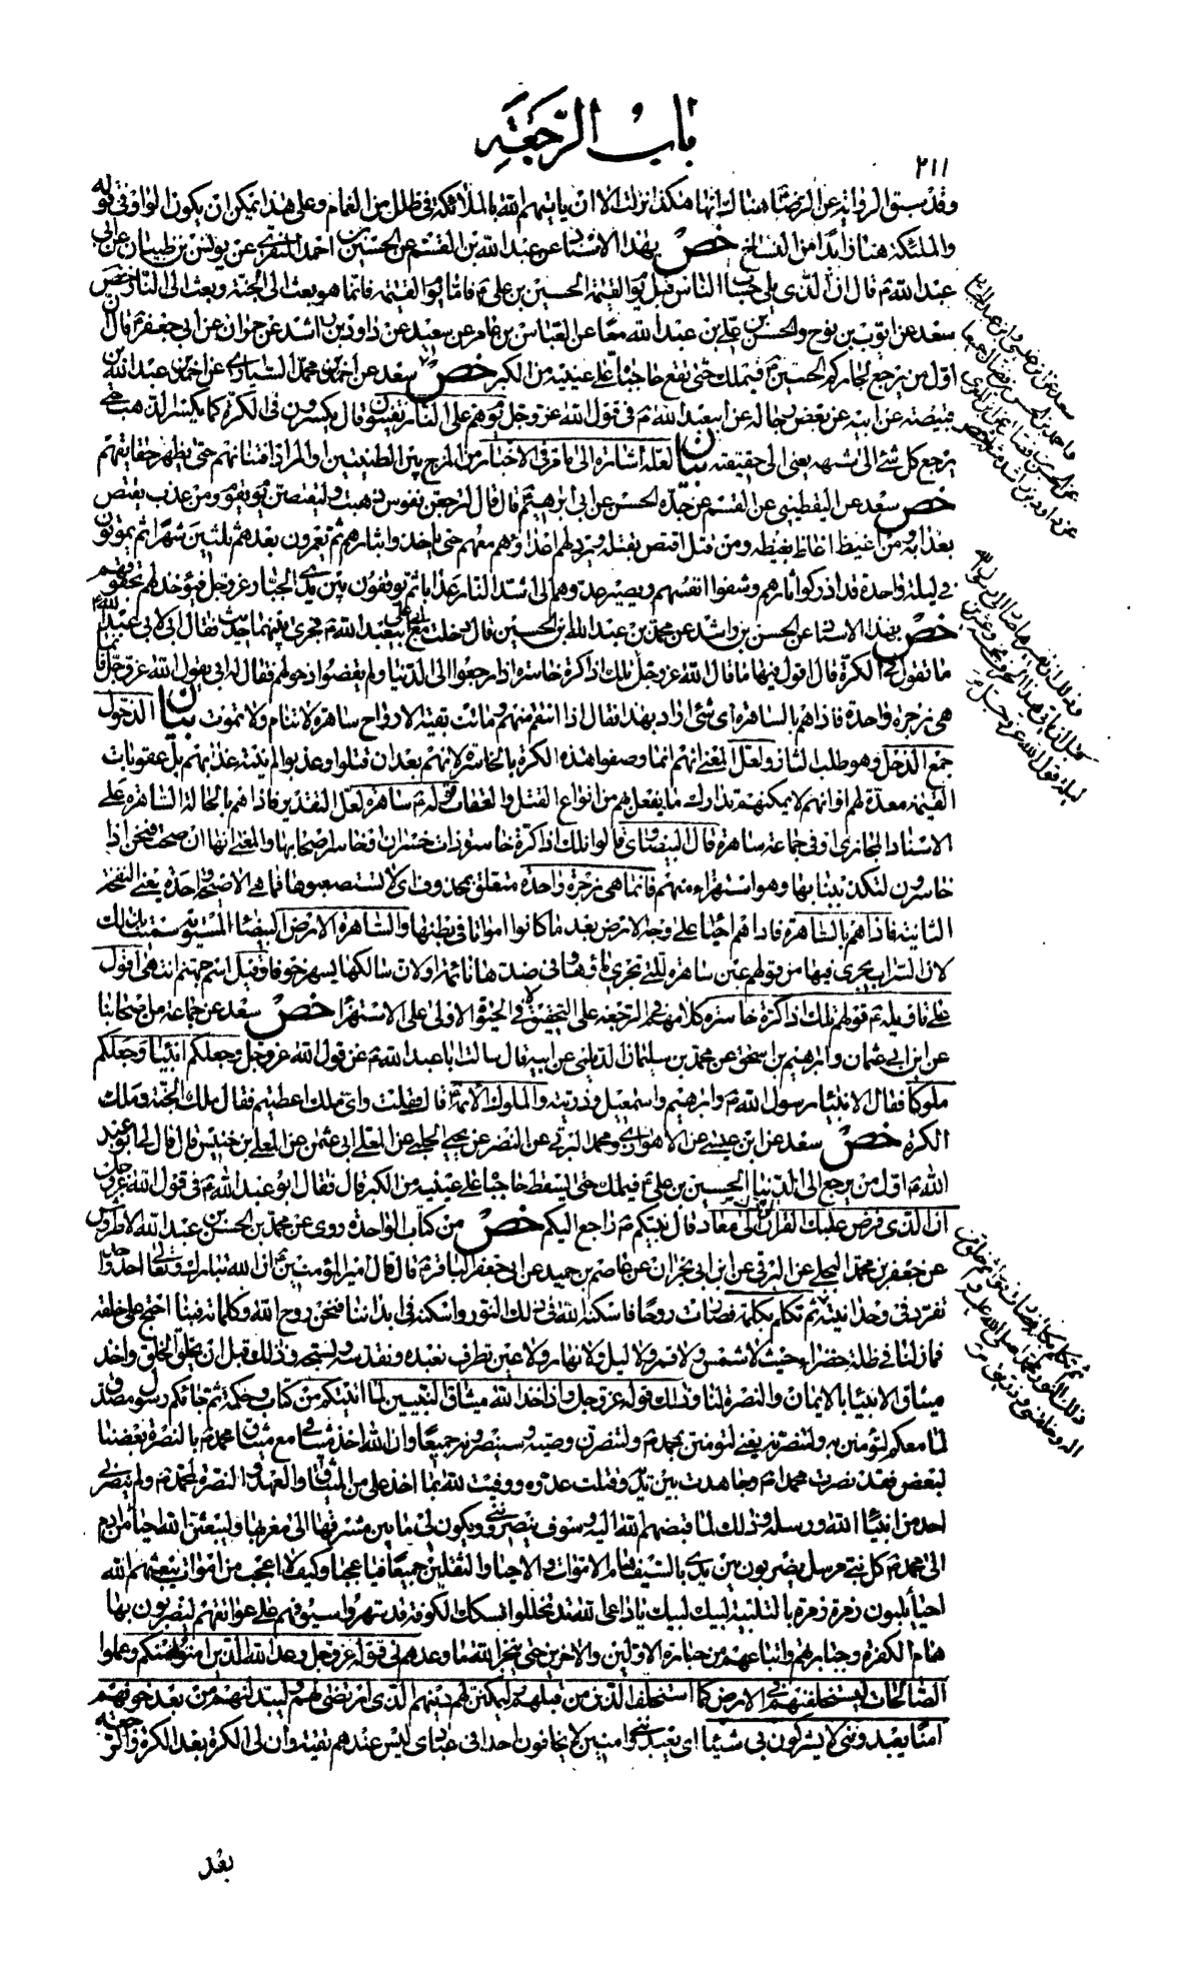 باب الرجعة
٢١١
وقد سبق الرواية عن الرضا ع هناك انها هكذا نزلت الا ان ياتيهم الله بالملائكة في ظلل من الغمام وعلى هذا يمكن ان يكون الواو في قوله
والملئكة هنا زايدا من النساخ خص بهذا الاسناد عن عبد الله بن القسم عن الحسين بن احمد المنقري عن يونس بن ظبيان عن ابي
عبد الله ع قال ان الذي يلي حساب الناس قبل يوم القيمة الحسين بن علي ع فاما يوم القيمة فانما هو بعث الى الجنة وبعث الى النار خص
سعد عن ايوب بن نوح والحسن بن علي بن عبد الله معا عن العباس بن عامر عن سعيد عن داود بن راشد عن حمران عن ابي جعفر ع قال
اول من يرجع لجاركم الحسين ع فيملك حتى تقع حاجباه على عينيه من الكبر خص سعد عن احمد بن محمد السياري عن احمد بن عبد الله بن
قبيصة عن ابيه عن بعض رجاله عن ابيعبد الله ع في قول الله عز وجل يوم هم على النار يفتنون قال يكسرون في الكرة كما يكسر الذهب حتى
يرجع كل شئ الى شبهه يعني الى حقيقته بيان لعله اشارة الى ما مر في الاخبار من المزج بين الطينتين او المراد افتتانهم حتى يظهر حقايقهم
خص سعد عن اليقطيني عن القسم عن جده الحسن عن ابي ابرهيم ع قال قال لترجعن نفوس ذهبت وليقتصن يوم يقوم ومن عذب يقتص
بعذابه ومن اغيظ اغاظ بغيظه ومن قتل اقتص بقتله ويرد لهم اعداؤهم معهم حتى ياخذوا بثارهم ثم يعمرون بعدهم ثلثين شهرا ثم يموتون
في ليلة واحدة قد ادركوا ثارهم وشفوا انفسهم ويصير عدوهم الى اشد النار عذابا ثم يوقفون بين يدي الجبار عز وجل فيؤخذ لهم بحقوقهم
خص بهذا الاسناد عن الحسن بن راشد عن محمد بن عبد الله بن الحسين قال دخلت مع ابي على ابيعبد الله ع فجرى بينهما حديث فقال ابي لابي عبد الله ع
ما تقول في الكرة قال اقول فيها ما قال الله عز وجل تلك اذا كرة خاسرة اذا رجعوا الى الدنيا ولم يقضوا ذحولهم فقال له ابي يقول الله عز وجل فانما
هي زجرة واحدة فاذا هم بالساهرة اي شئ اراد بهذا فقال اذا انتقم منهم وماتت بقية الارواح ساهرة لا تنام ولا تموت بيان الذحول
جمع الذحل وهو طلب الثار ولعل المعنى انهم انما وصفوا هذه الكرة بالخاسرة لانهم بعد ان قتلوا وعذبوا لم ينته عذابهم بل عقوبات
القيمة معدة لهم او انهم لا يمكنهم تدارك ما يفعل بهم من انواع القتل والعقاب قوله ع ساهرة لعل التقدير فاذا هم بالحالة الساهرة على
الاسناد المجازي او في جماعة ساهرة قال البيضاوي قالوا تلك اذا كرة خاسرة ذات خسران او خاسر اصحابها والمعنى انها ان صحت فنحن اذا
خاسرون لتكذيبنا بها وهو استهزاء منهم فانما هي زجرة واحدة متعلق بمحذوف اي لا تستصعبوها فما هي الا صيحة واحدة يعني النفخة
الثانية فاذا هم بالساهرة فاذا هم احياء على وجه الارض بعد ما كانوا امواتا في بطنها والساهرة الارض البيضاء المستوية سميت بذلك
لان السراب يجري فيها من قولهم عين ساهرة للتي تجري ماؤها وفي ضدها نائمة او لان سالكها يسهر خوفا وقيل اسم جهنم انتهى اقول
على تاويله ع قولهم تلك اذا كرة خاسرة كلامهم في الرجعة على التحقيق لا في الحيوة الاولى على الاستهزاء خص سعد عن جماعة من اصحابنا
عن ابن ابي عثمان وابرهيم بن اسحق عن محمد بن سليمان الديلمي عن ابيه قال سالت ابا عبد الله ع عن قول الله عز وجل وجعلكم انبياء وجعلكم
ملوكا فقال الانبياء رسول الله ص وابرهيم واسمعيل وذريته والملوك الائمة ع قال فقلت واي ملك اعطيتم فقال ملك الجنة وملك
الكرة خص سعد عن ابن عيسى عن الاهوازي ومحمد البرقي عن النضر عن يحيى الحلبي عن المعلى ابي عثمن عن المعلى بن خنيس قال قال لي ابو عبد
الله ع اول من يرجع الى الدنيا الحسين بن علي ع فيملك حتى يسقط حاجباه على عينيه من الكبر قال فقال ابو عبد الله ع في قول الله عز وجل
ان الذي فرض عليك القران لرادك الى معاد قال نبيكم ص راجع اليكم خص من كتاب الواحدة روى عن محمد بن الحسن بن عبد الله الاطروش
عن جعفر بن محمد البجلي عن البرقي عن ابن ابي نجران عن عاصم بن حميد عن ابي جعفر الباقر ع قال قال امير المؤمنين ع ان الله تبارك وتعالى احد واحد
تفرد في وحدانيته ثم تكلم بكلمة فصارت روحا فاسكنه الله في ذلك النور واسكنه في ابداننا فنحن روح الله وكلماته فبنا احتج على خلقه
فما زلنا في ظلة خضراء حيث لا شمس ولا قمر ولا ليل ولا نهار ولا عين تطرف نعبده ونقدسه ونسبحه وذلك قبل ان يخلق الخلق واخذ
ميثاق الانبياء بالايمان والنصرة لنا وذلك قوله عز وجل واذ اخذ الله ميثاق النبيين لما اتيتكم من كتاب وحكمة ثم جاءكم رسول مصدق
لما معكم لتؤمنن به ولتنصرنه يعني لتؤمنن بمحمد ص ولتنصرن وصيه وسينصرونه جميعا وان الله اخذ ميثاقي مع ميثاق محمد ص بالنصرة بعضنا
لبعض فقد نصرت محمدا ص وجاهدت بين يديه وقتلت عدوه ووفيت لله بما اخذ علي من الميثاق والعهد والنصرة لمحمد ص ولم ينصرني
احد من انبياء الله ورسله وذلك لما قبضهم الله اليه وسوف ينصرونني ويكون لي ما بين مشرقها الى مغربها وليبعثن الله احياء من ادم
الى محمد ص كل نبي مرسل يضربون بين يدي بالسيف هام الاموات والاحياء والثقلين جميعا فيا عجبا وكيف لا اعجب من اموات يبعثهم الله
احياء يلبون زمرة زمرة بالتلبية لبيك لبيك يا داعي الله قد تخللوا بسكك الكوفة قد شهروا سيوفهم على عواتقهم ليضربون بها
هام الكفرة وجبابرتهم واتباعهم من جبابرة الاولين والاخرين حتى ينجز الله ما وعدهم في قوله عز وجل وعد الله الذين امنوا منكم وعملوا
الصالحات ليستخلفنهم في الارض كما استخلف الذين من قبلهم وليمكنن لهم دينهم الذي ارتضى لهم وليبدلنهم من بعد خوفهم
امنا يعبدونني لا يشركون بي شيئا اي يعبدونني امنين لا يخافون احدا في عبادتي ليس عندهم تقية وان لي الكرة بعد الكرة والرجعة
بعد